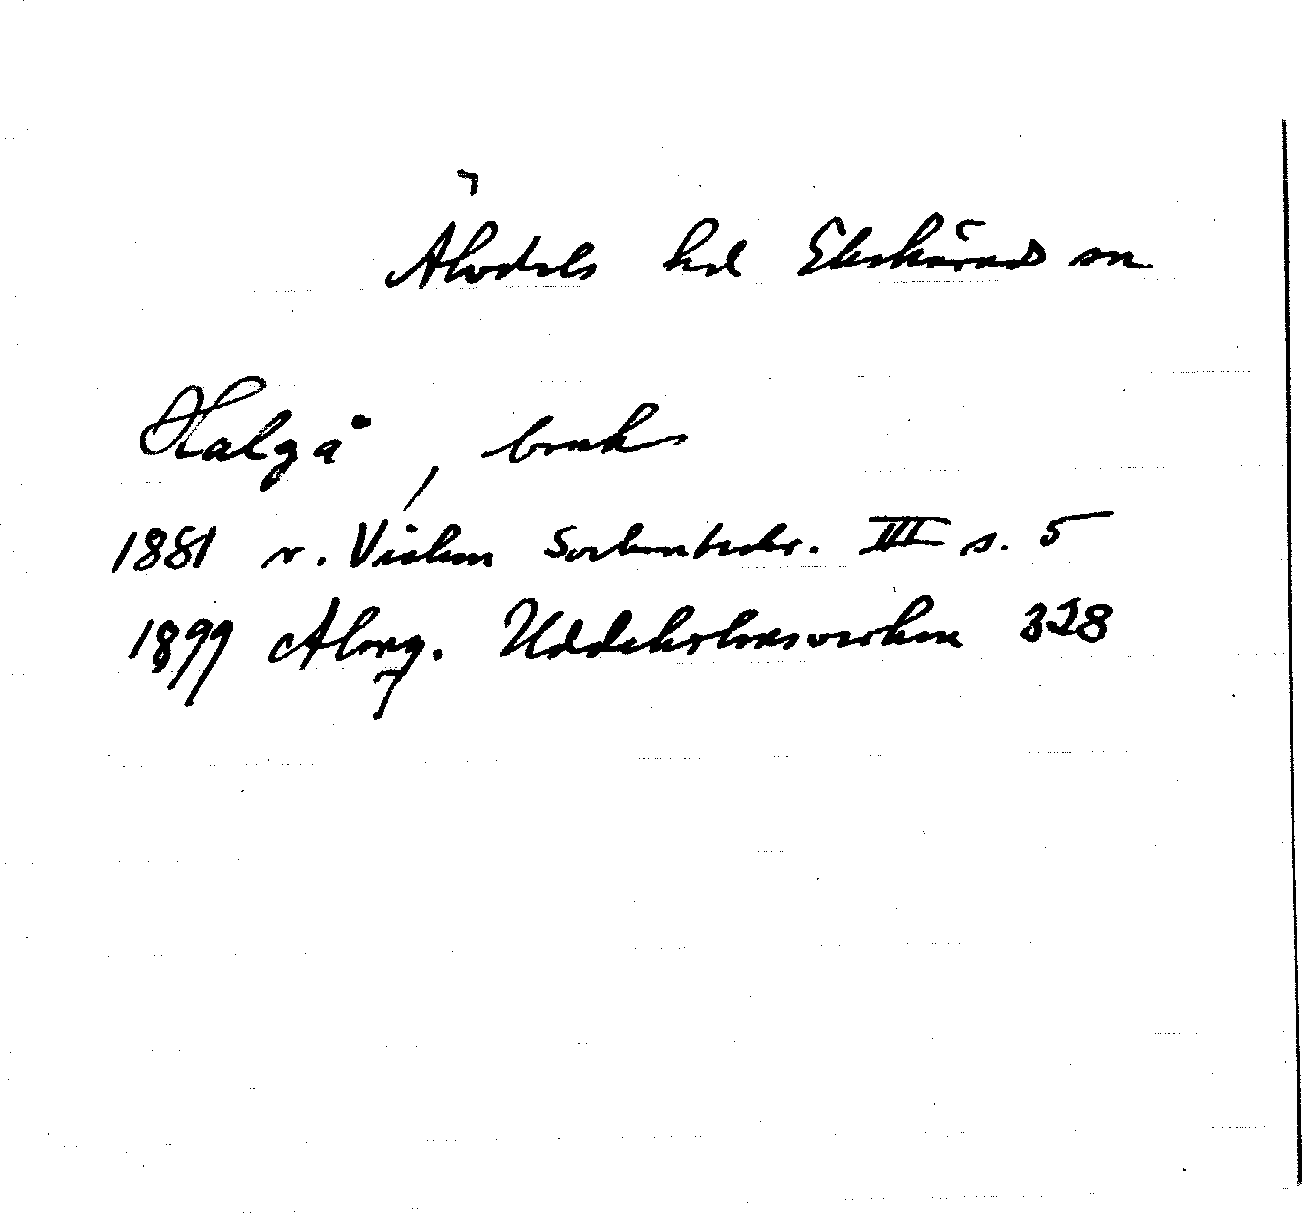 Älvdals hd Ekshärad sn
Halgå, bruk
1881 v. Vicken Sockenbeskr. III s. 5
1899 Almq. Uddeholmsverken 328